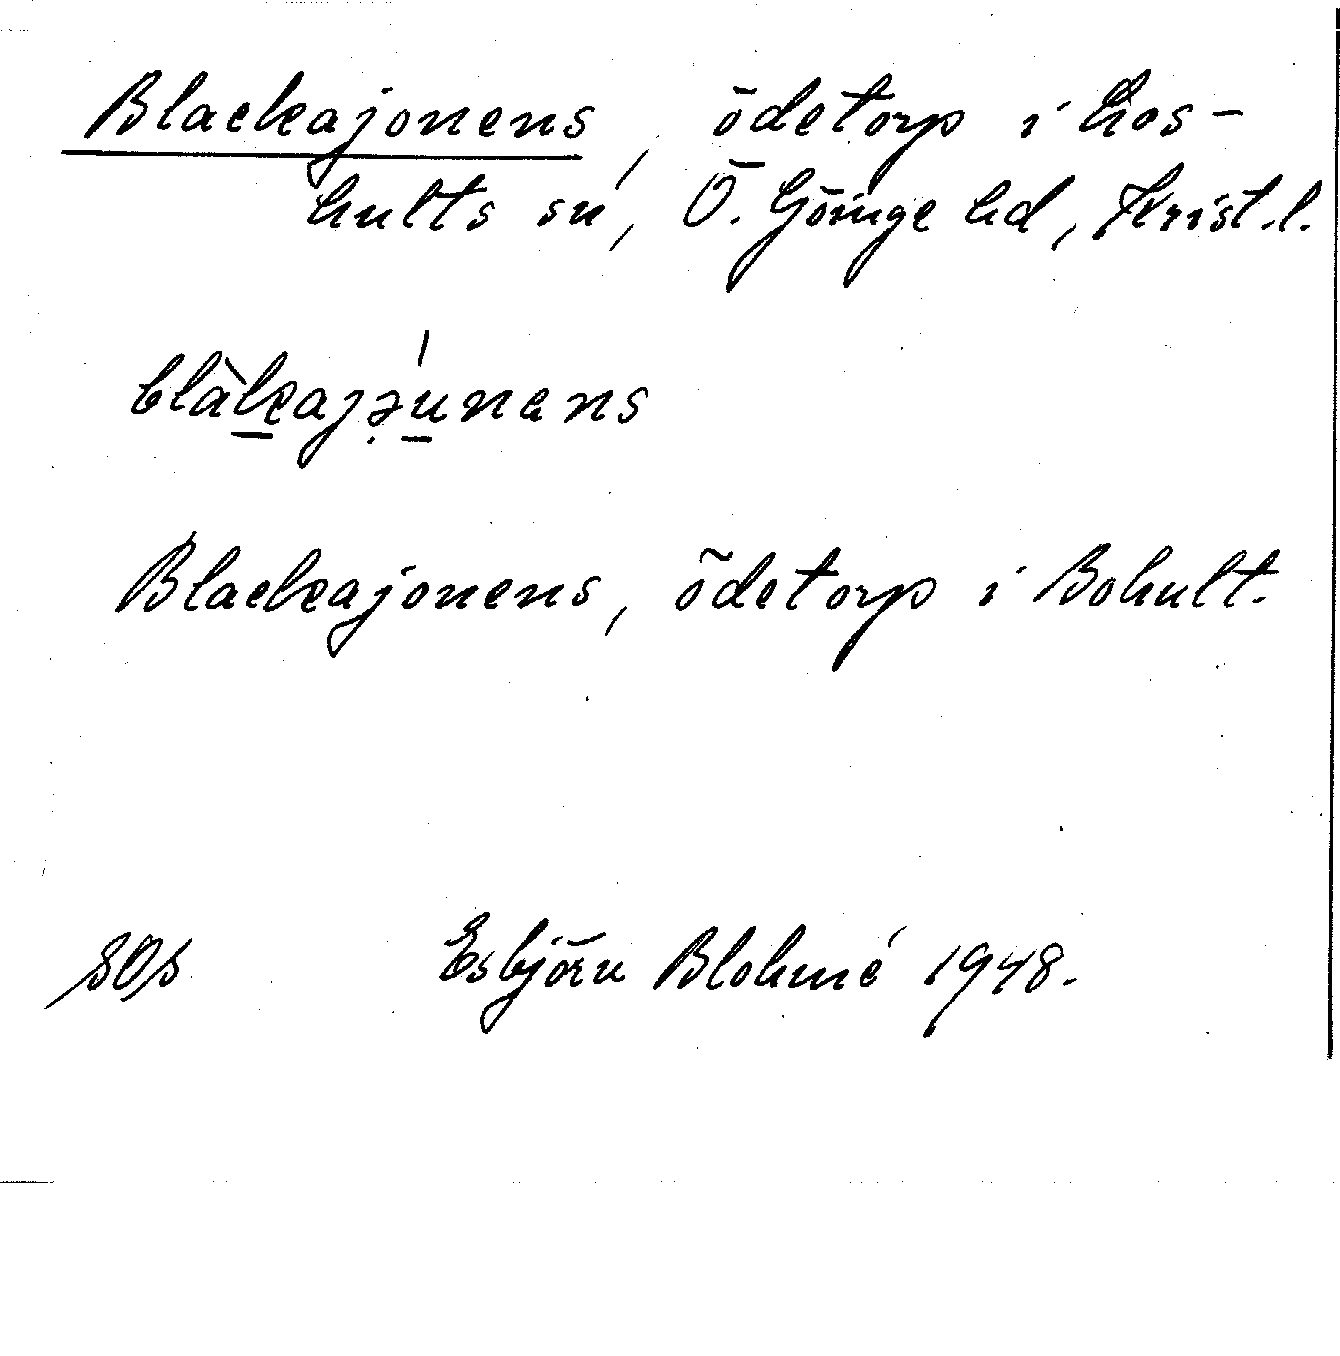 Blackajonens, ödetorp i Hos-
hults sn, Ö. Göinge hd, Krist.l.
blàkajə́unans
Blackajonens, ödetorp i Bohult.
SOs Esbjörn Blohmé 1948.